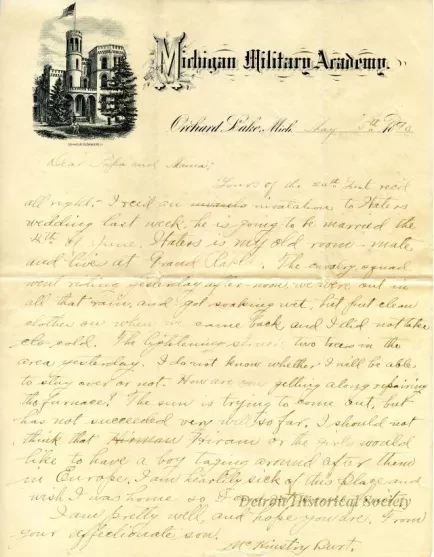 Michigan Military Academy.
Orchard Lake, Mich. May 5th 189
Dear Papa and Mama:
Yours of the inst rec'd
all right. I rec'd an invatation to
wedding last week, he is going to be married the
4th of June, is my old room-mate,
and lives at Grand Rapids. The cavalry squad
went riding yesterday after-noon, we were out in
all that rain, and got soaking wet, but put clean
clothes on when we came back, and I did not take
cold. The lightening struck two trees in the
area yesterday. I do not know whether I will be able
to stay over or not. How are you getting along repairing
the furnace? The sun is trying to come out, but
has not succeeded very well so far. I should not
think that Hiram or the girls would
like to have a boy taging around after them
in Europe. I am heartily sick of this place and
wish I was home so I
I am pretty well, and hope you are. From
your affectionate son.
McKinstry Burt.
Detroit Historical Society